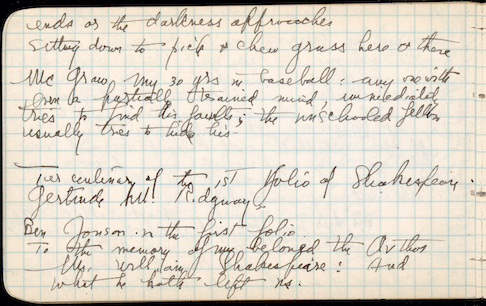 ends as the darkness approaches
Sitting down to pick & chew grass here & there
Mc Graw, my 30 yrs in baseball: any one with
even a partially trained mind, immediately
tries to find his faults; the unschooled fellow
usually tries to hide his
Tercentenary of the 1st Folio of Shakespeare
Gertrude Hill Ridgway
Ben Jonson in the first folio
To the memory of my beloved the Author
Mr. William Shakespeare: And
what he hath left us.